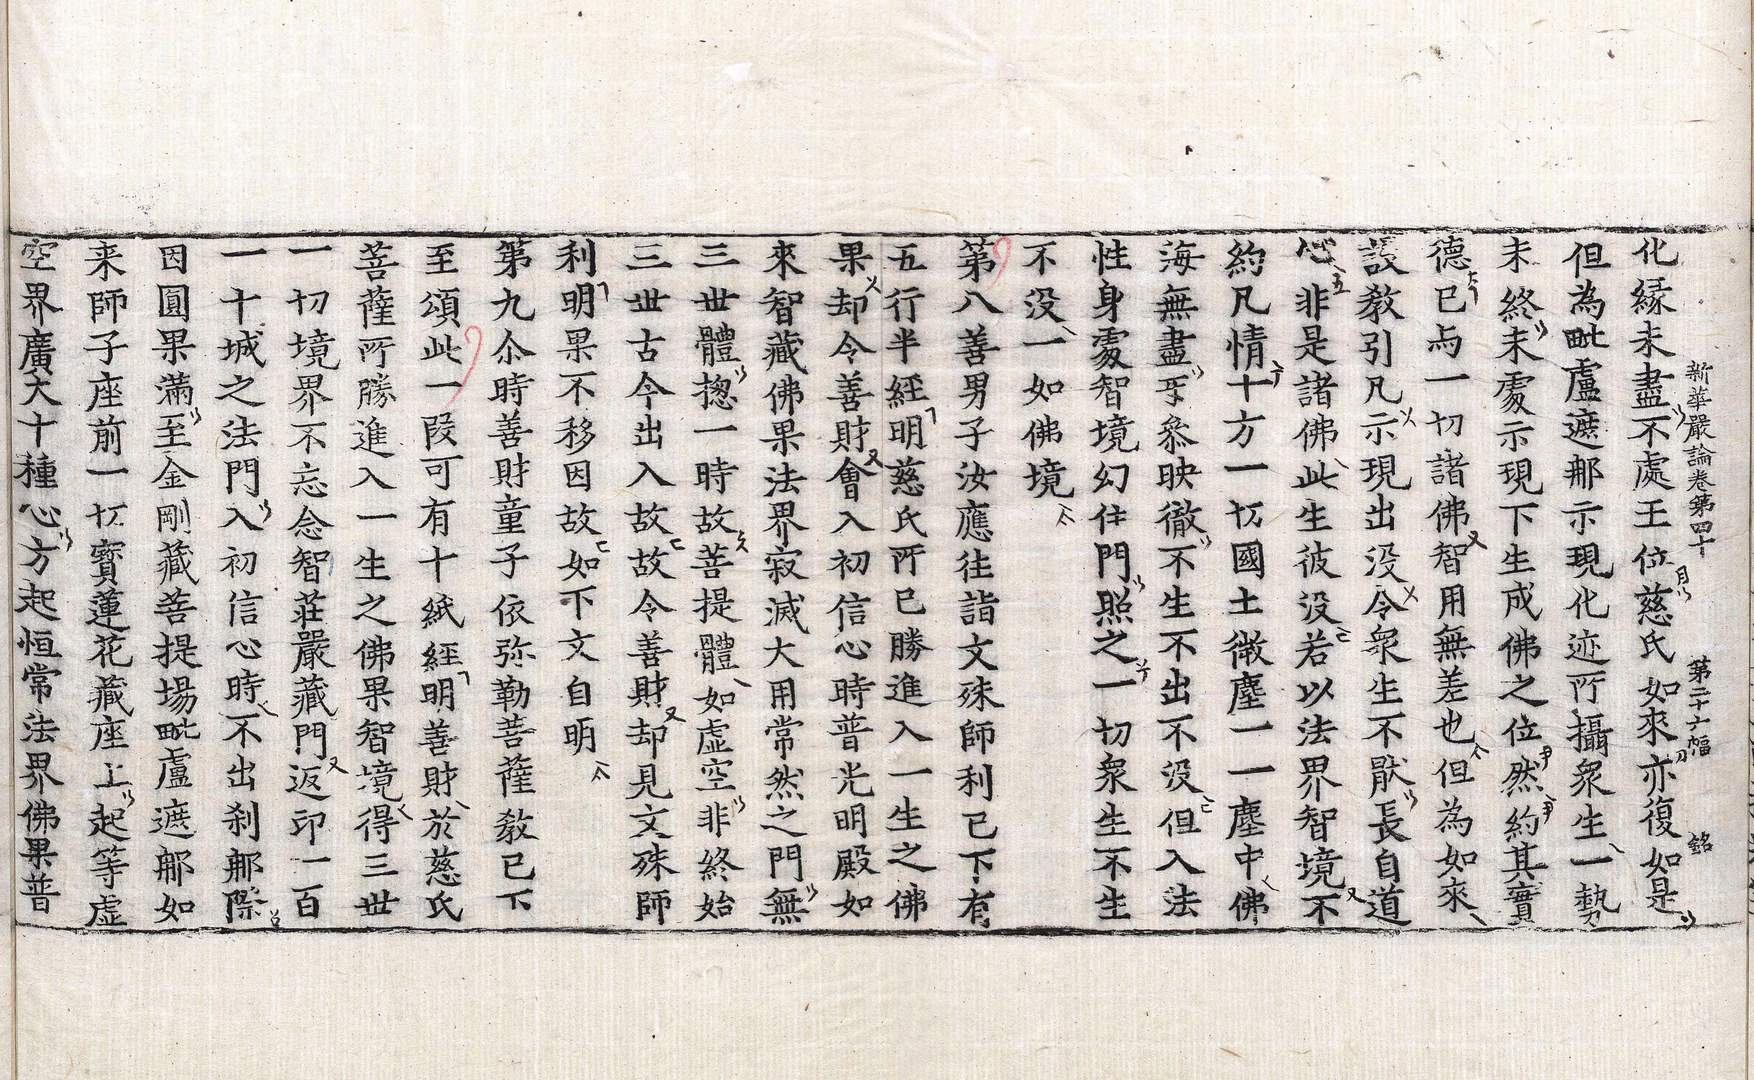 新華嚴論卷第四十 第二十六幅 銘
化縁未盡不處王位慈氏如來亦復如是
但為毗盧遮那示現化迹所攝衆生一勢
未終未處示現下生成佛之位然約其實
德已与一切諸佛智用無差也但為如來
設教引凡示現出没令衆生不猒長自道
心非是諸佛此生彼没若以法界智境不
約凡情十方一切國土微塵一一塵中佛
海無盡叅映徹不生不出不没但入法
性身處智境幻住門照之一切衆生不生
不没一如佛境
第八善男子汝應往詣文殊師利已下有
五行半經明慈氏所已勝進入一生之佛
果却令善財會入初信心時普光明殿如
來智藏佛果法界寂滅大用常然之門無
三世體揔一時故菩提體如虛空非終始
三世古今出入故故令善財却見文殊師
利明果不移因故如下文自明
第九尒時善財童子依弥勒菩薩教已下
至頌此一段可有十紙經明善財於慈氏
菩薩所勝進入一生之佛果智境得三世
一切境界不忘念智莊嚴藏門返印一百
一十城之法門入初信心時不出刹那際
因圓果滿至金剛藏菩提場毗盧遮那如
来師子座前一切寶蓮花藏座上起等虛
空界廣大十種心方起恒常法界佛果普